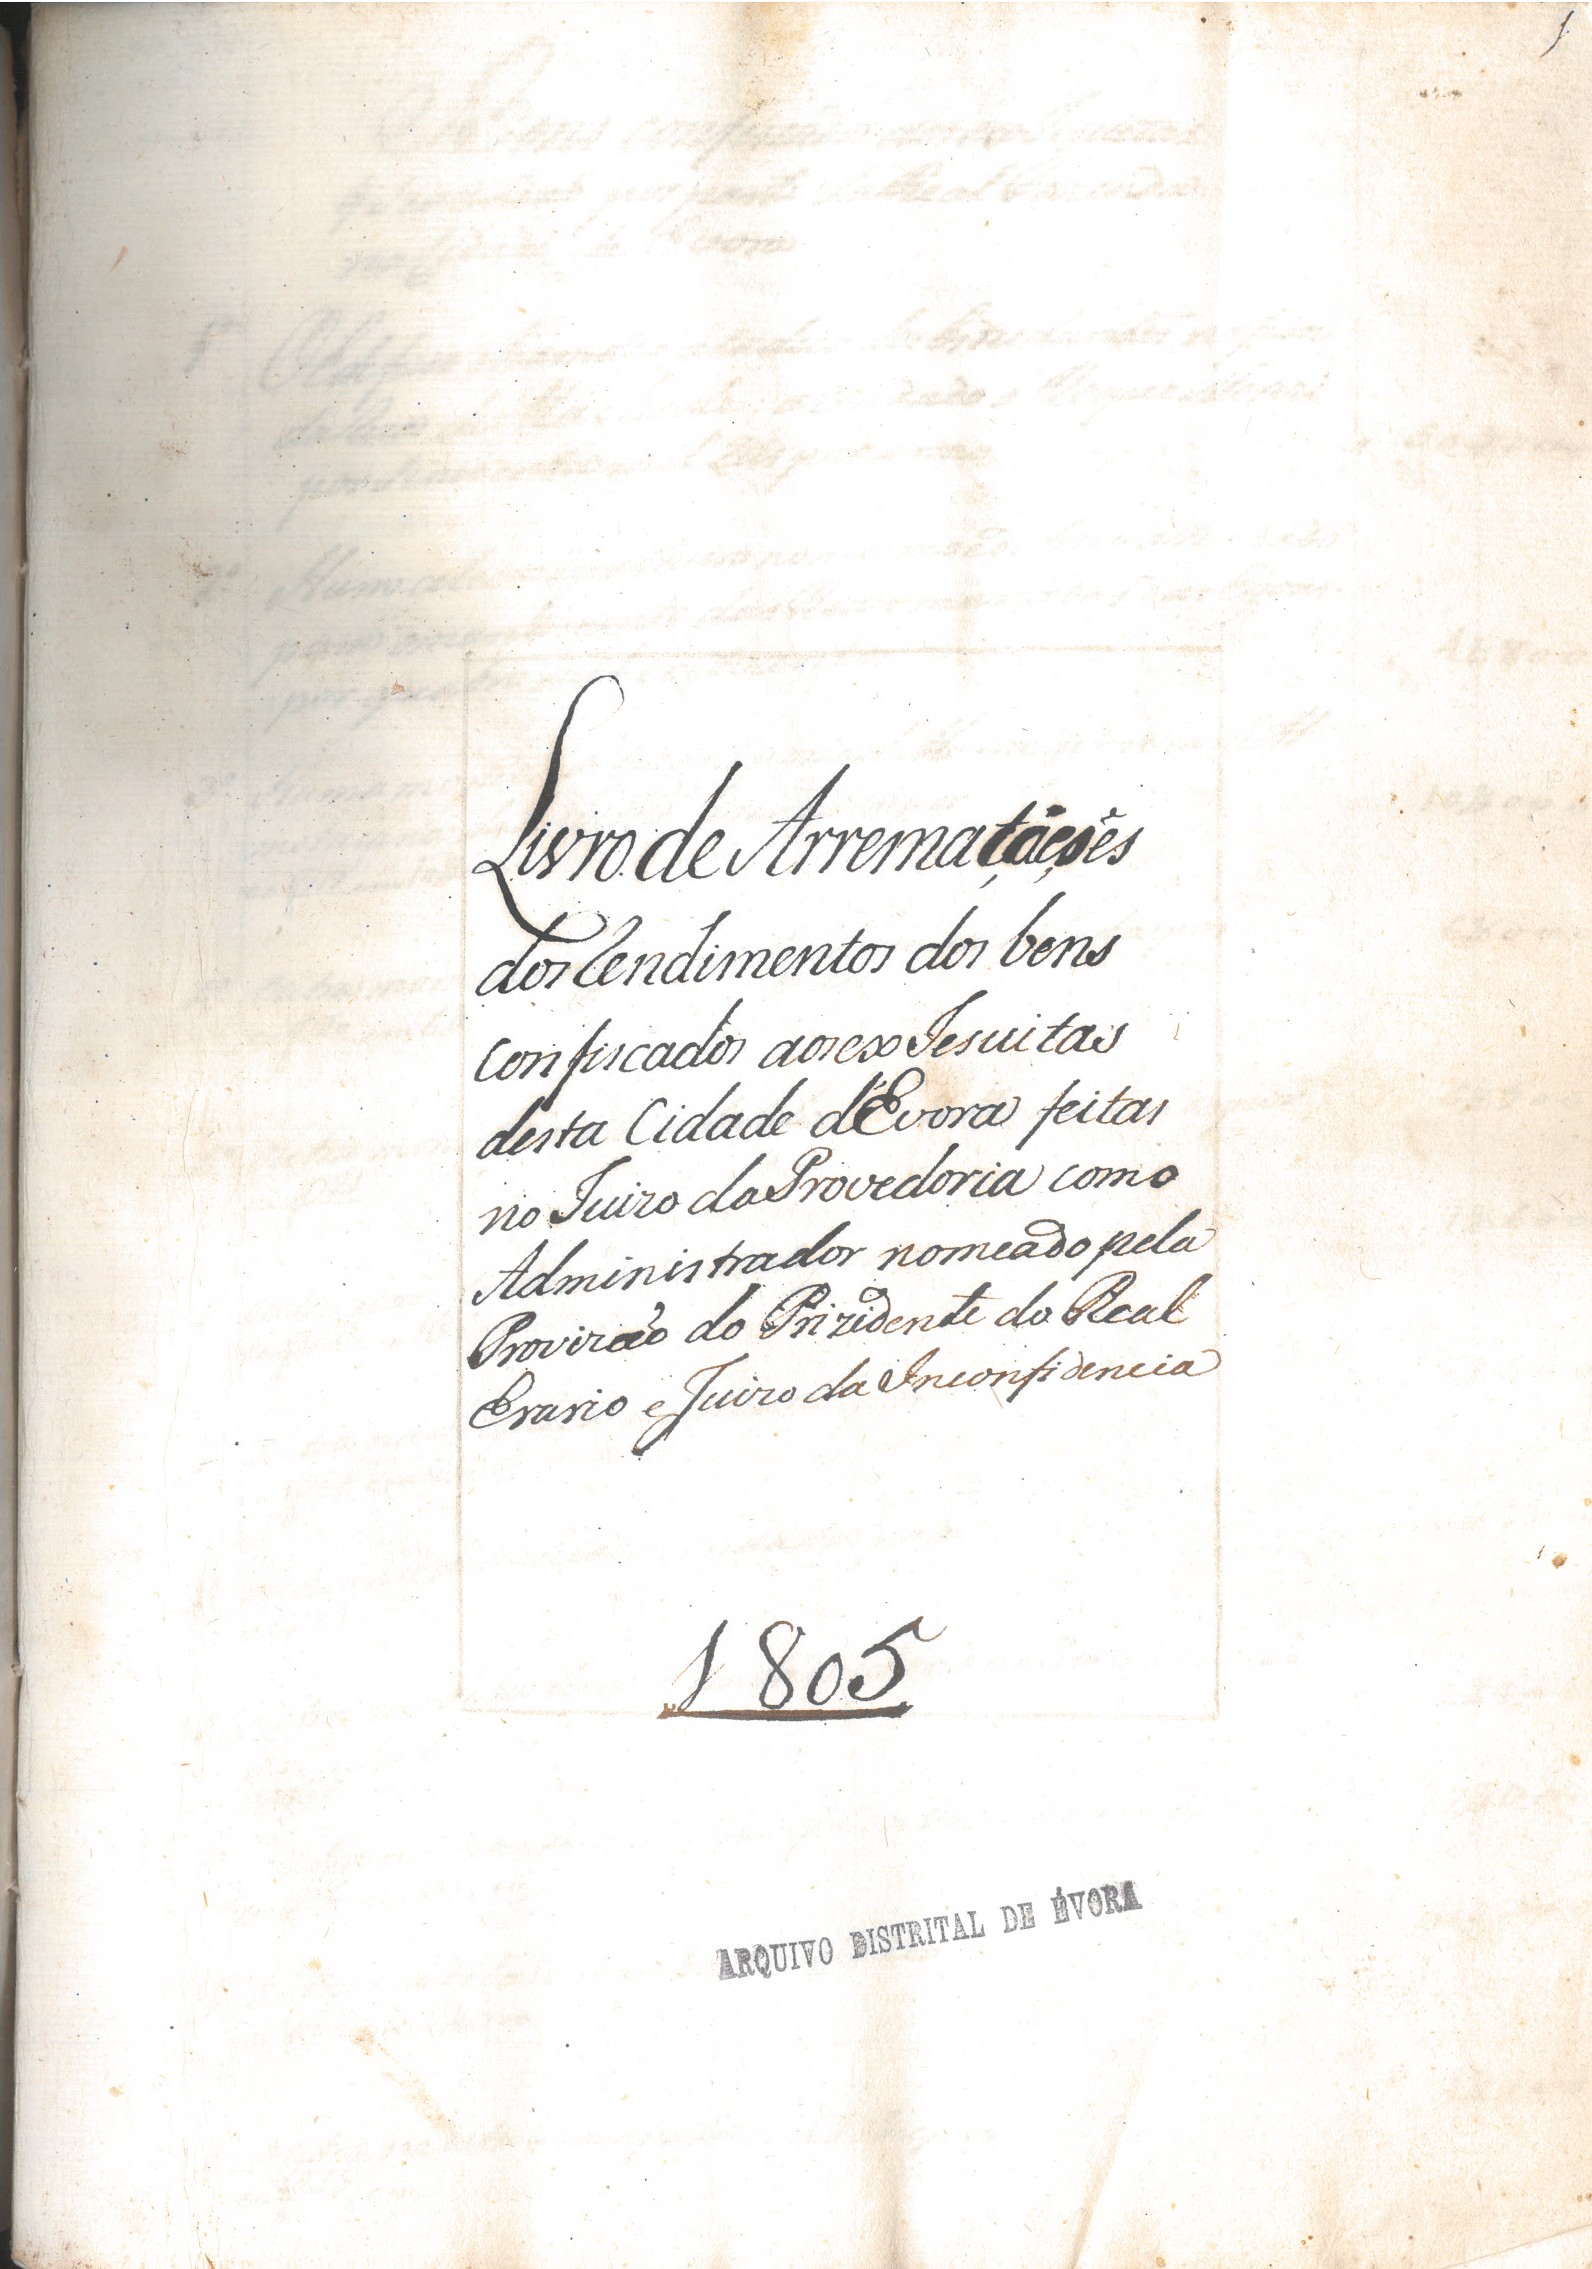 1
Livro de Arremataçoẽs
dos Rendimentos dos bens
confiscados aos ex Jesuitas
desta Cidade d'Evora feitas
no Juizo da Provedoria como
Administrador nomeado pela
Provizaõ do Prizidente do Real
Erario e Juizo da Inconfidencia
1805
ARQUIVO DISTRITAL DE ÉVORA